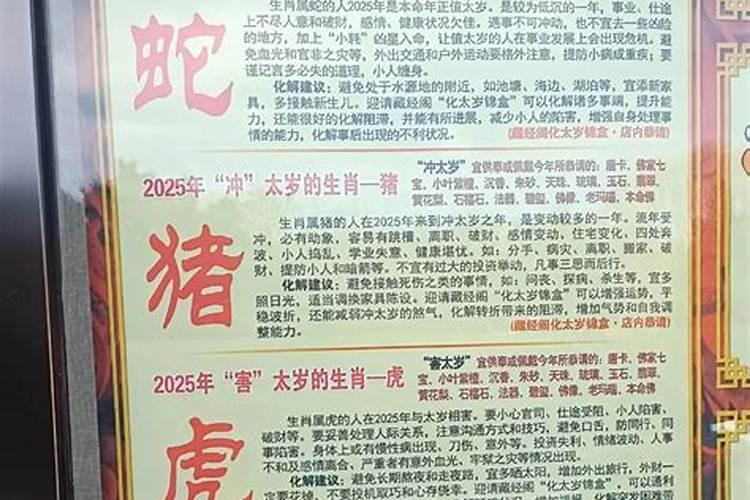 生肖属蛇的人2025年是本命年正值太岁，是较为低沉的一年，事业、仕途
上不尽人意和破财，感情、健康状况欠佳。遇事不可冲动，也不宜去一些凶险
的地方，加上“小耗”凶星入命，让值太岁的人在事业发展上会出现危机。避
免血光和官非之灾等，外出交通和户外运动要格外注意，提防小病成重疾；要
谨记言多必失的道理，小人缠身。
化解建议：避免处于水源地的附近，如池塘、海边、湖泊等，宜添新家
具，多接触新生儿。迎请藏经阁“化太岁锦盒”可以化解诸多事端，提升能
力，还能很好的化解阻滞，并能有所进展，减少小人的陷害，增强自身处理事
情的能力，化解事后出现的不利状况。
(藏经阁化太岁锦盒·店内恭请)
蛇
2025年“冲”太岁的生肖—猪
“冲太岁”宜供奉或佩戴今年所恭请的：唐卡、佛家七
宝、小叶紫檀、沉香、朱砂、天珠、琉璃、玉石、翡翠、
黄花梨、石榴石、法器、碧玺、佛像、老玛瑙、本命佛
猪
生肖属猪的人在2025年来到冲太岁之年，是变动较多的一年。流年受
冲，必有动象，容易有跳槽、离职、破财、感情变动、住宅变化、四处奔
波、小人捣乱、学业失意、健康堪忧。如：分手、病灾、离职、搬家、破
财、提防小人和暗箭等。不宜有过大的投资举动，凡事三思而后行。
化解建议：避免接触死伤之类的事情，如：问丧、探病、杀生等，宜多
照日光，适当调换家具陈设。迎请藏经阁“化太岁锦盒”可以增强运势，平
稳波折，还能减弱冲太岁的煞气，化解转折带来的阻滞，增加气势和自我调
整能力。
(藏经阁化太岁锦盒·店内恭请)
2025年“害”太岁的生肖—虎
“害太岁”宜供奉或佩戴今年所恭请的：唐卡、佛家七
宝、小叶紫檀、沉香、朱砂、天珠、琉璃、玉石、翡翠、
黄花梨、石榴石、法器、碧玺、佛像、老玛瑙、本命佛
虎
生肖属虎的人在2025年与太岁相害。要小心官司、仕途受阻、小人陷害、
破财等。要妥善处理人际关系，注意沟通方式和技巧，避免口舌，防同行、同
事陷害。身体上或有慢性病出现、刀伤、意外等。投资失利、情绪波动、人事
不和及感情离合、严重者有意外血光、牢狱之灾等情况出现。
化解建议：避免长期熬夜和走夜路，宜多晒太阳，增加外出旅行，外财一
定要花掉，不要投机取巧和心存侥幸。迎请藏经阁“化太岁锦盒”，可以通利